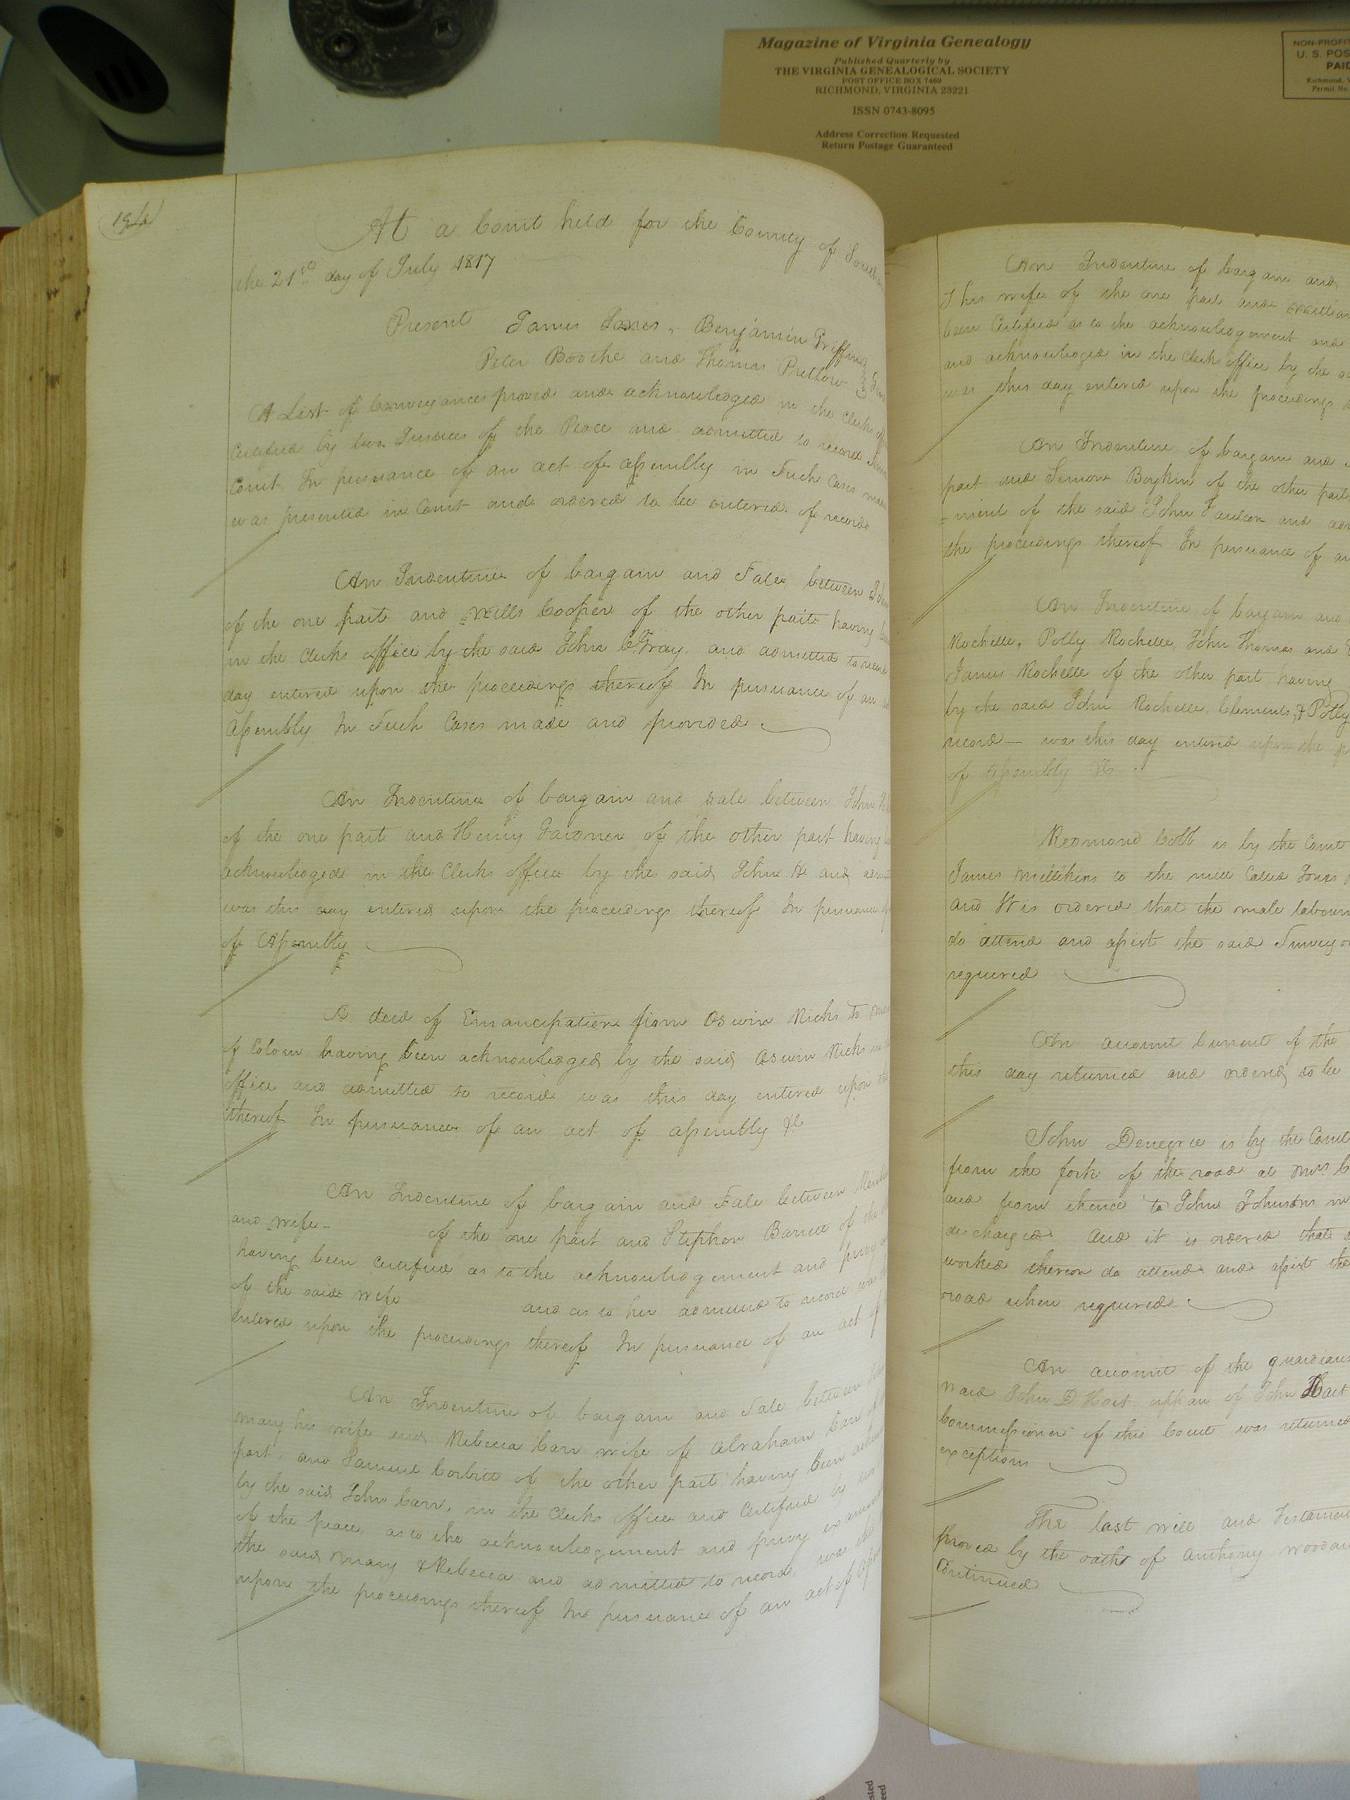 Magazine of Virginia Genealogy
Published Quarterly by
THE VIRGINIA GENEALOGICAL SOCIETY
POST OFFICE BOX 7469
RICHMOND, VIRGINIA 23221
ISSN 0743-8095
Address Correction Requested
Return Postage Guaranteed
NON-PROFIT
U. S. POS
PAID
Richmond, V
Permit No.
At a Court held for the County of South
the 21st day of July 1817
Present James Jones, Benjamin Griffin
Peter Boothe and Thomas Pretlow
A List of Conveyances proved and acknowledged in the Clerks
Certified by two Justices of the Peace and admitted to record
Court In pursuance of an act of assembly in Such Cases made
was presented in Court and ordered to be entered of record
An Indenture of bargain and Sale between John
of the one part and Mills Cooper of the other part having
in the Clerks office by the said John C Gray and admitted to record
day entered upon the proceedings thereof In pursuance of an
Assembly In Such Cases made and provided
An Indenture of bargain and sale between John
of the one part and Henry Gardner of the other part having
acknowledged in the Clerks office by the said John and
was this day entered upon the proceedings thereof In pursuance
of Assembly
A deed of Emancipation from Oswin Nicks to
of Colour having been acknowledged by the said Oswin Nicks
office and admitted to record was this day entered upon the
thereof In pursuance of an act of assembly &c
An Indenture of bargain and Sale between
and wife of the one part and Stephen Barnes of the
having been certified as to the acknowledgement and privy
of the said wife and as to her admitted to record was
entered upon the proceedings thereof In pursuance of an act of
An Indenture of bargain and Sale between
Mary his wife and Rebecca Carr wife of Abraham Carr of
part, and Samuel Corbitt of the other part having been
by the said John Carr, in the Clerks office and Certified by two
of the peace as to the acknowledgement and privy
the said Mary & Rebecca and admitted to record was
upon the proceedings thereof In pursuance of an act of
An Indenture of bargain and
his wife of the one part and William
been Certified as to the acknowledgement and
and acknowledged in the Clerk office by the
was this day entered upon the proceedings
An Indenture of bargain and
part and Simon Boykin of the other part
ment of the said John and
the proceedings thereof In pursuance of an
An Indenture of bargain and
Rochelle, Polly Rochelle, John Thomas and
James Rochelle of the other part having
by the said John Rochelle, Clements, & Polly
record was this day entered upon the
of Assembly &c
Redmond Cobb is by the Court
James Millikins to the mill Called
and It is ordered that the male labour
do attend and assist the said Survey
required
An account Current of the
this day returned and ordered to be
John Denegre is by the Court
from the fork of the road at Mrs
and from thence to John Johnsons
discharged And it is ordered that
worked thereon do attend and assist the
road when required
An account of the guardian
ward John D Hart orphan of John Hart
Commissioner of this Court was returned
exceptions
The last will and Testament
proved by the oaths of Anthony
Continued